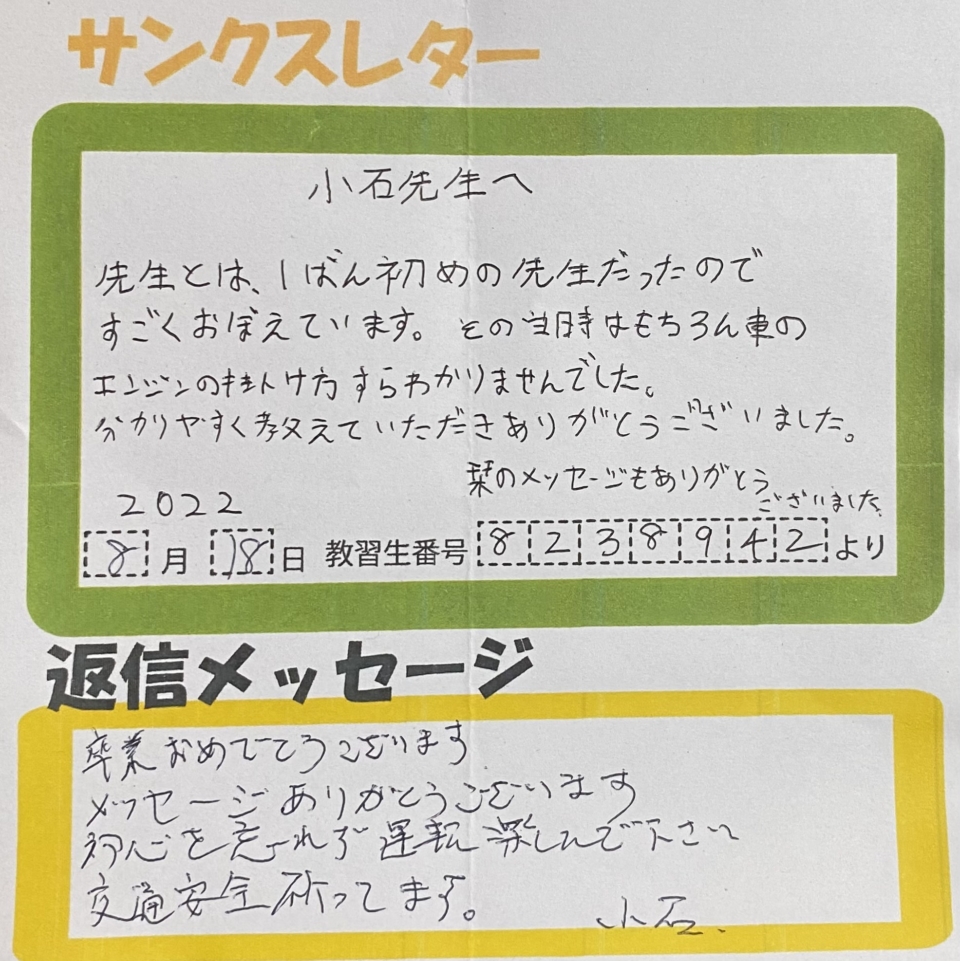 サンクスレター
小石先生へ
先生とは、1ばん初めの先生だったので
すごくおぼえています。その当時はもちろん車の
エンジンの掛け方すらわかりませんでした。
分かりやすく教えていただきありがとうございました。
栞のメッセージもありがとう
ございました。
2022
8月18日 教習生番号 8238942より
返信メッセージ
卒業おめでとうございます
メッセージありがとうございます
初心を忘れず運転楽しんで下さい
交通安全祈ってます。
小石.